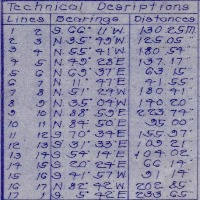 Technical Desriptions
Lines Bearings Distances
1 2 S.66° 11'W 130.25M.
2 3 N.35° 49'W 125.05"
3 4 N.55° 41'W 180.54"
4 5 N.49° 28'E 137.17"
5 6 N.69° 37'E 63.15"
6 7 N.11° 47'E 41.55"
7 8 N.51° 24'W 180.41"
8 9 N.35° 04'W 140.20"
9 10 N.88° 59'E 223.74"
10 11 N.84° 50'E 95.00"
11 12 S.70° 34'E 155.97"
12 13 S.31° 33'E 109.21"
13 14 S.54° 14'E 104.02"
14 15 S.20° 24'E 66.14"
15 16 S.41° 57'W 91.14"
16 17 N.82° 42'W 202.85"
17 S. 5° 42'E 233.65"